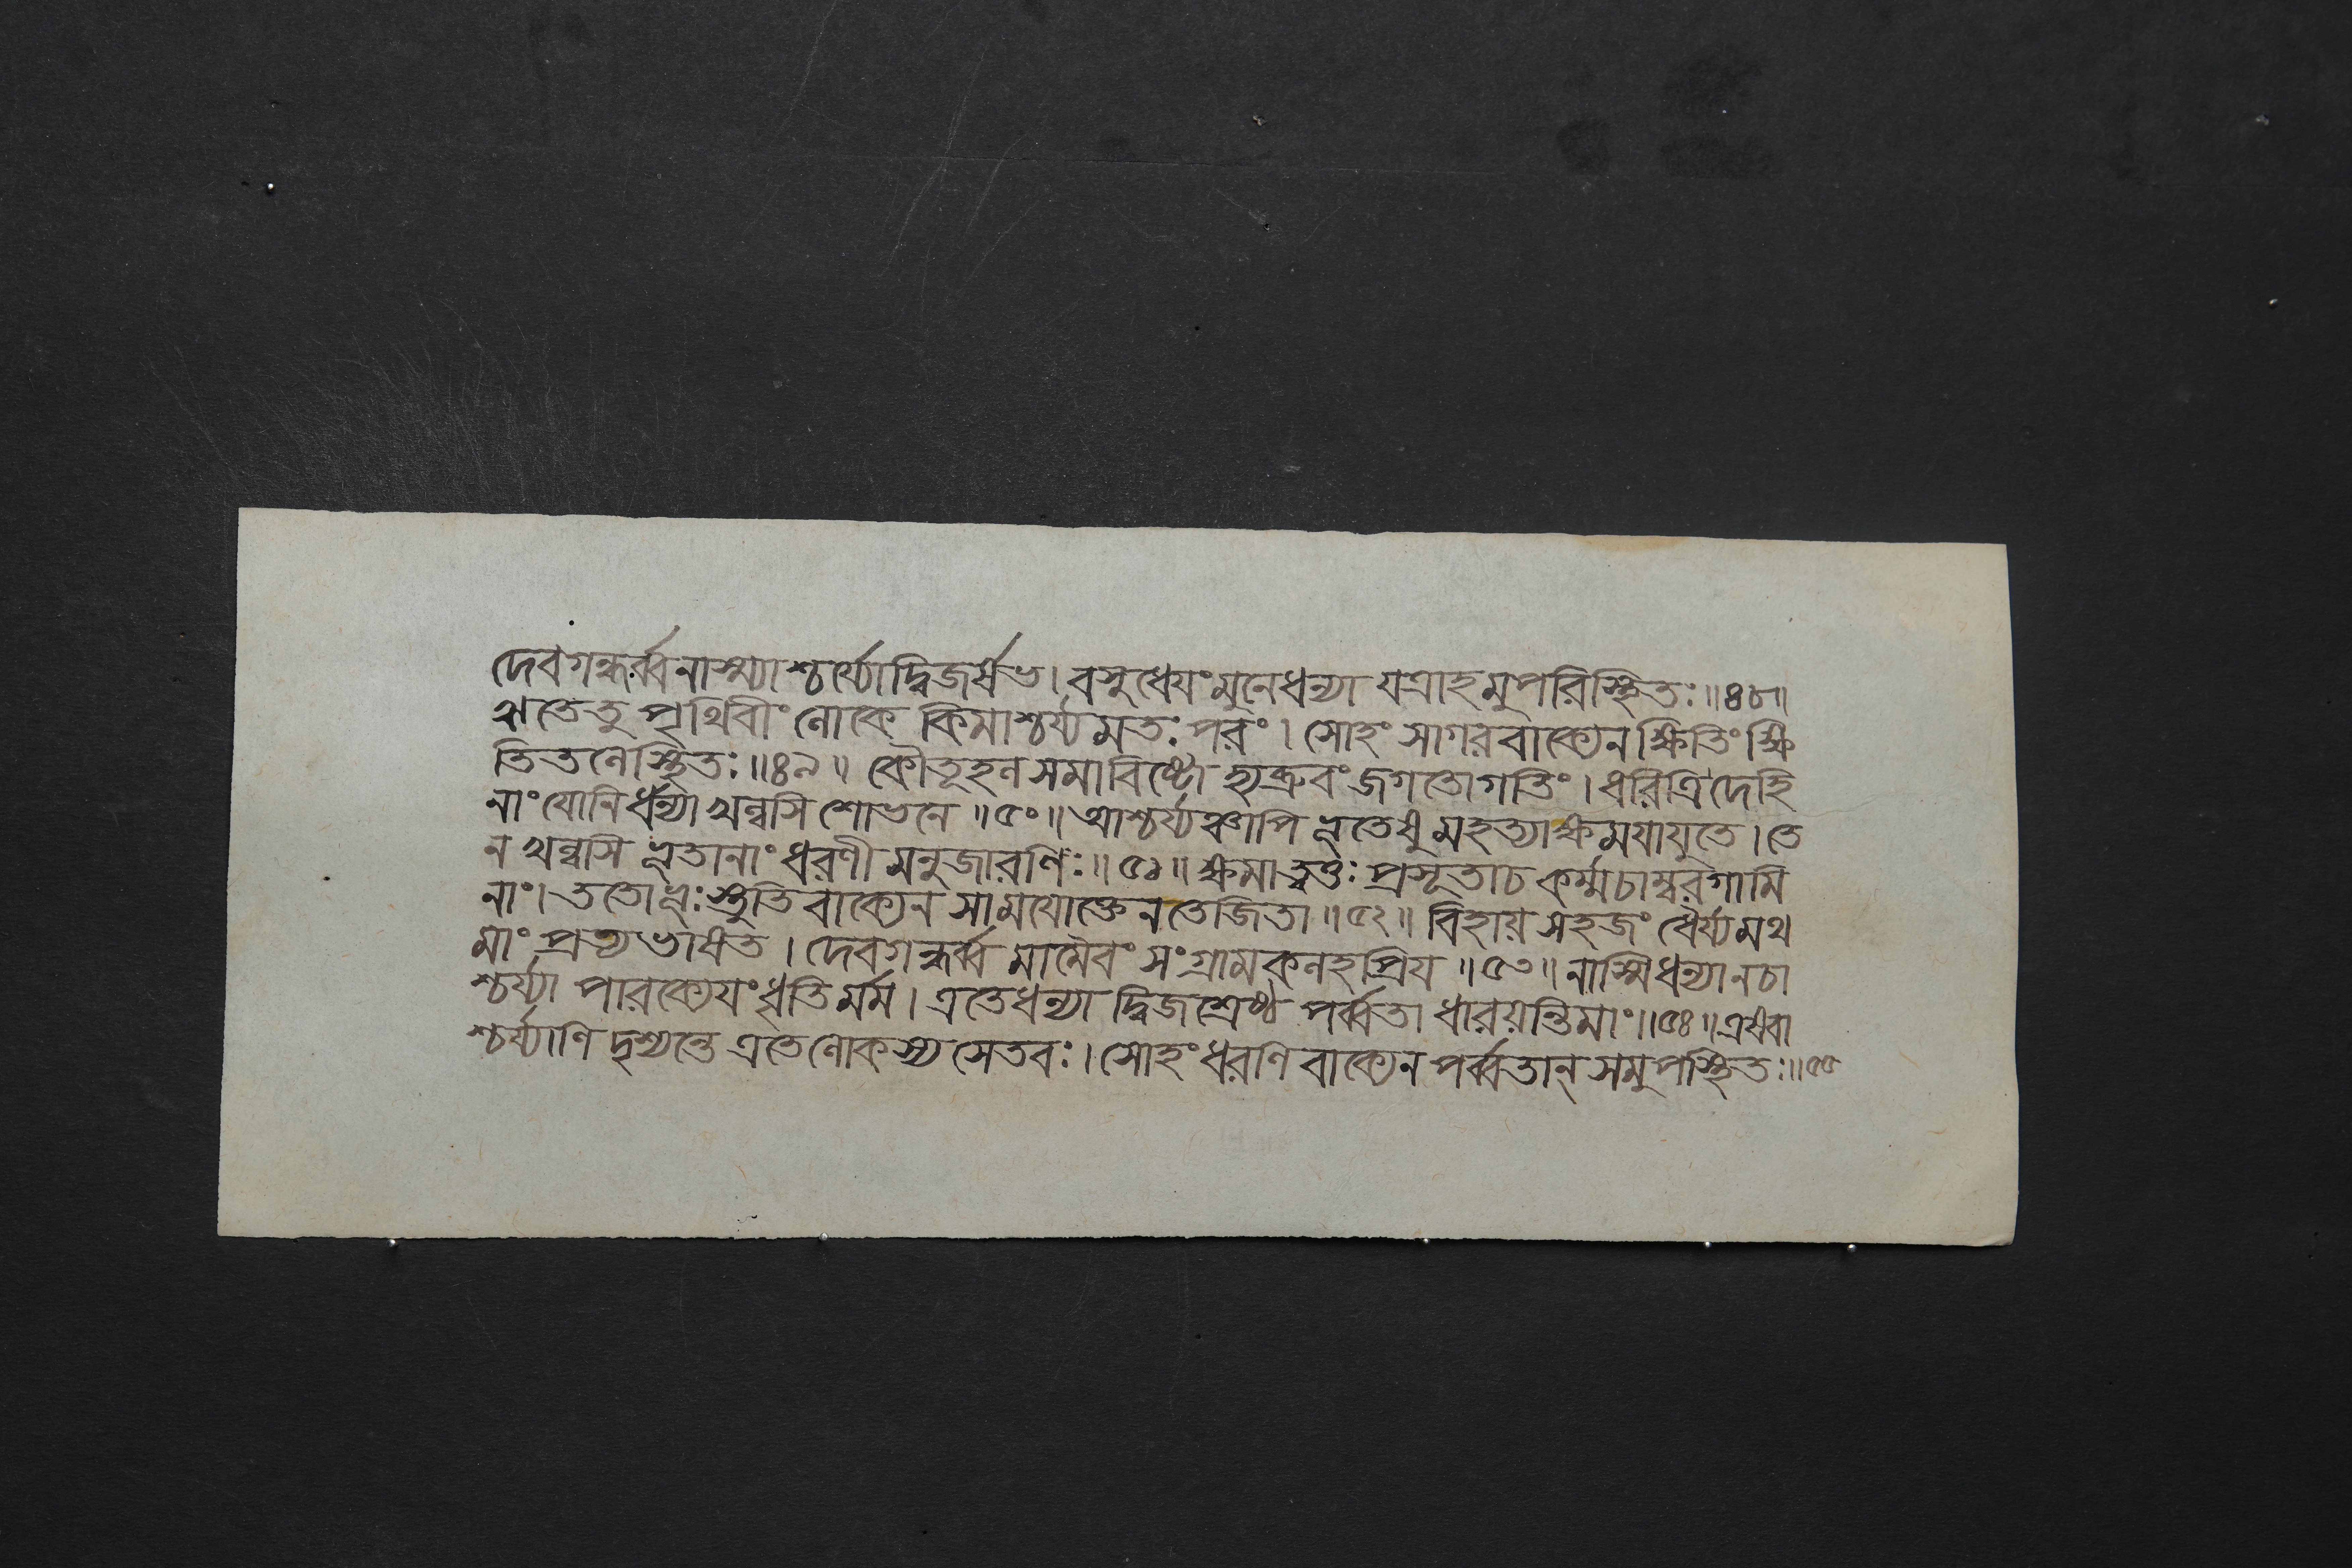 দেবগন্ধর্ব্বনাস্ম্যাশ্চর্য্যোদ্বিজর্ষভ। বসুধেযংমুনেধন্যা যত্রাহমুপরিস্থিতঃ॥৪৮॥
ঋতেতু পৃথিবীং লোকে কিমাশ্চর্য্যমতঃ পরং। সোহং সাগরবাক্যেন ক্ষিতিং ক্ষি
তিতলেস্থিতঃ॥৪৯॥ কৌতূহলসমাবিষ্টো হ্যব্রুবং জগতোগতিং। ধরিত্রি দেহি
নাং যোনির্ধন্যা খল্বসি শোভনে॥৫০॥ আশ্চর্য্যঞ্চাপি ভূতেষু মহত্যাক্ষমযাযুতে। তে
ন খল্বসি ভূতানাং ধরণী মনুজারণিঃ॥৫১॥ ক্ষমাত্বত্তঃ প্রসূতাচ কর্ম্মচাম্বরগামি
নাং। ততোভূঃ স্তুতিবাক্যেন সামযোক্তেন তেজিতা॥৫২॥ বিহায় সহজং ধৈর্য্যমথ
মাং প্রত্যভাষত। দেবগন্ধর্ব্ব মামৈবং সংগ্রামকলহপ্রিয॥৫৩॥ নাস্মিধন্যানচা
শ্চর্য্যা পারক্যেযংধৃতির্মম। এতেধন্যা দ্বিজশ্রেষ্ঠ পর্ব্বতা ধারয়ন্তিমাং॥৫৪॥ এষেবা
শ্চর্য্যাণি দৃশ্যন্তে এতে লোকস্য সেতবঃ। সোহং ধরণিবাক্যেন পর্ব্বতান্ সমুপস্থিতঃ॥৫৫